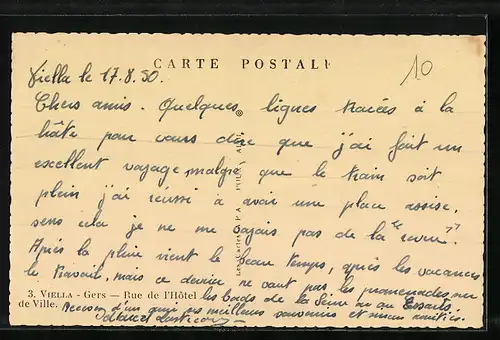 CARTE POSTALE
10
Viella le 17.8.50.
Chers amis. Quelques lignes tracées à la
hâte pour vous dire que j'ai fait un
excellent voyage malgré que le train soit
plein j'ai réussi à avoir une place assise,
sens cela je ne me
pas de la "
Après la pluie vient le beau temps, après les vacances
le travail, mais ce dernier ne vaut pas les promenades sur
3. VIELLA - Gers — Rue de l'Hôtel
de Ville.
les bords de la Seine ou au Essarts.
Recevez d'un ami ses meilleurs souvenirs et sincères amitiés.